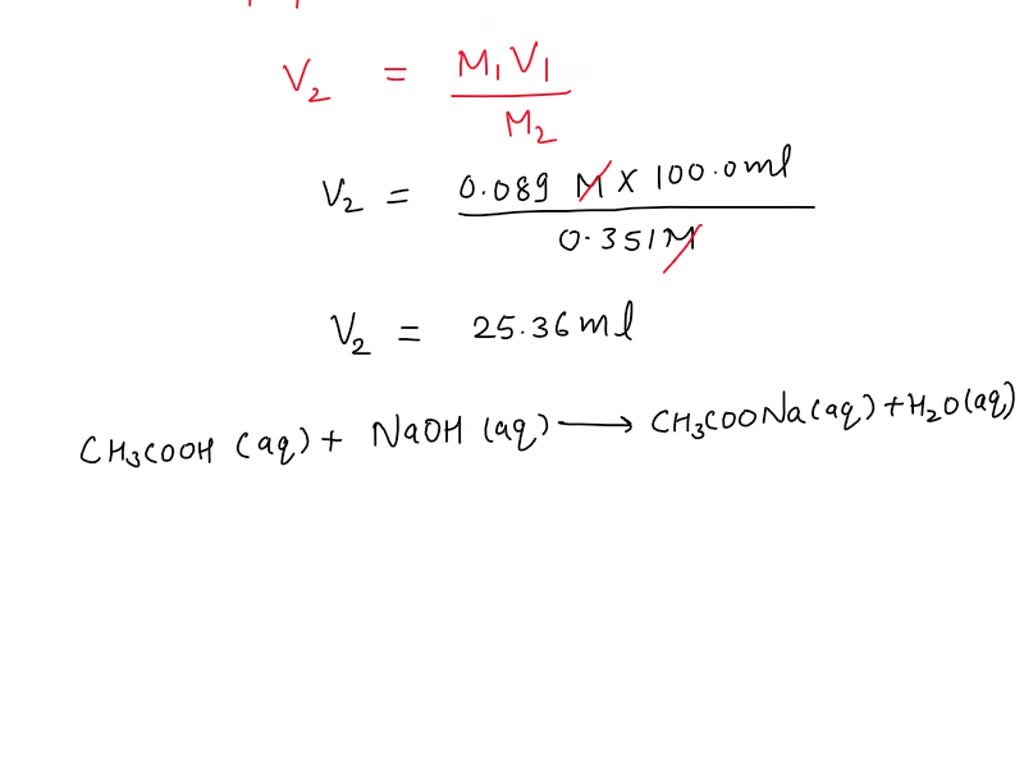 V₂ = M₁V₁ / M₂
V₂ = 0.089 M × 100.0 ml / 0.351 M
V₂ = 25.36 ml
CH₃COOH (aq) + NaOH (aq) ⟶ CH₃COONa (aq) + H₂O (aq)